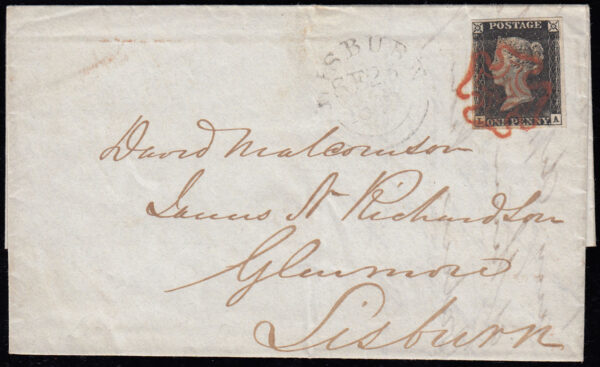 POSTAGE
ONE PENNY
L A
SE 26
David Malcomson
James N Richardson
Glenmore
Lisburn